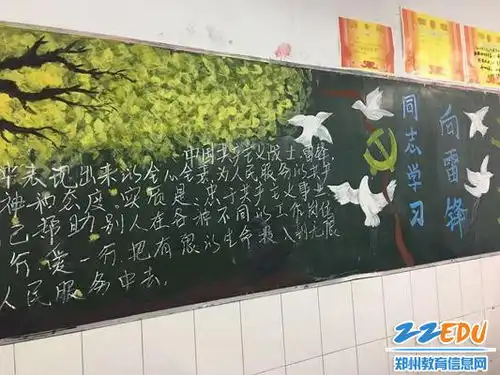 向雷锋
同志学习
中国共产主义战士雷锋
毕表现出来的全心全意为人民服务的共产
神病态度,实质是:忠于共产主义事业
己帮助别人在各种不同的工作岗位
行,爱一行.把有限的生命投入到无限
人民服务中去.
ZZEDU
郑州教育信息网